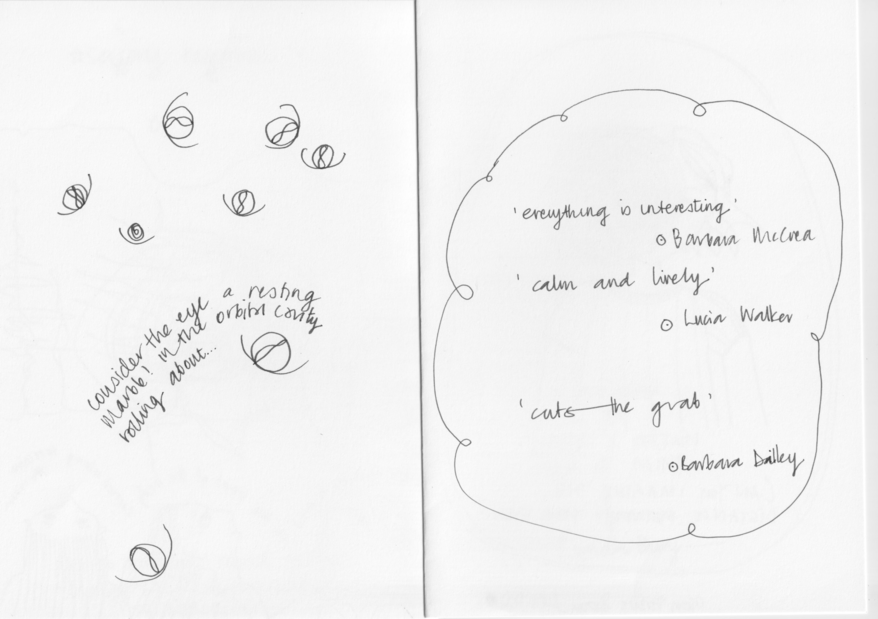 consider the eye a resting
marble! in the orbital cavity
rolling about...
'everything is interesting'
Barbara McCrea
'calm and lively'
Lucia Walker
'cuts the grab'
Barbara Dilley